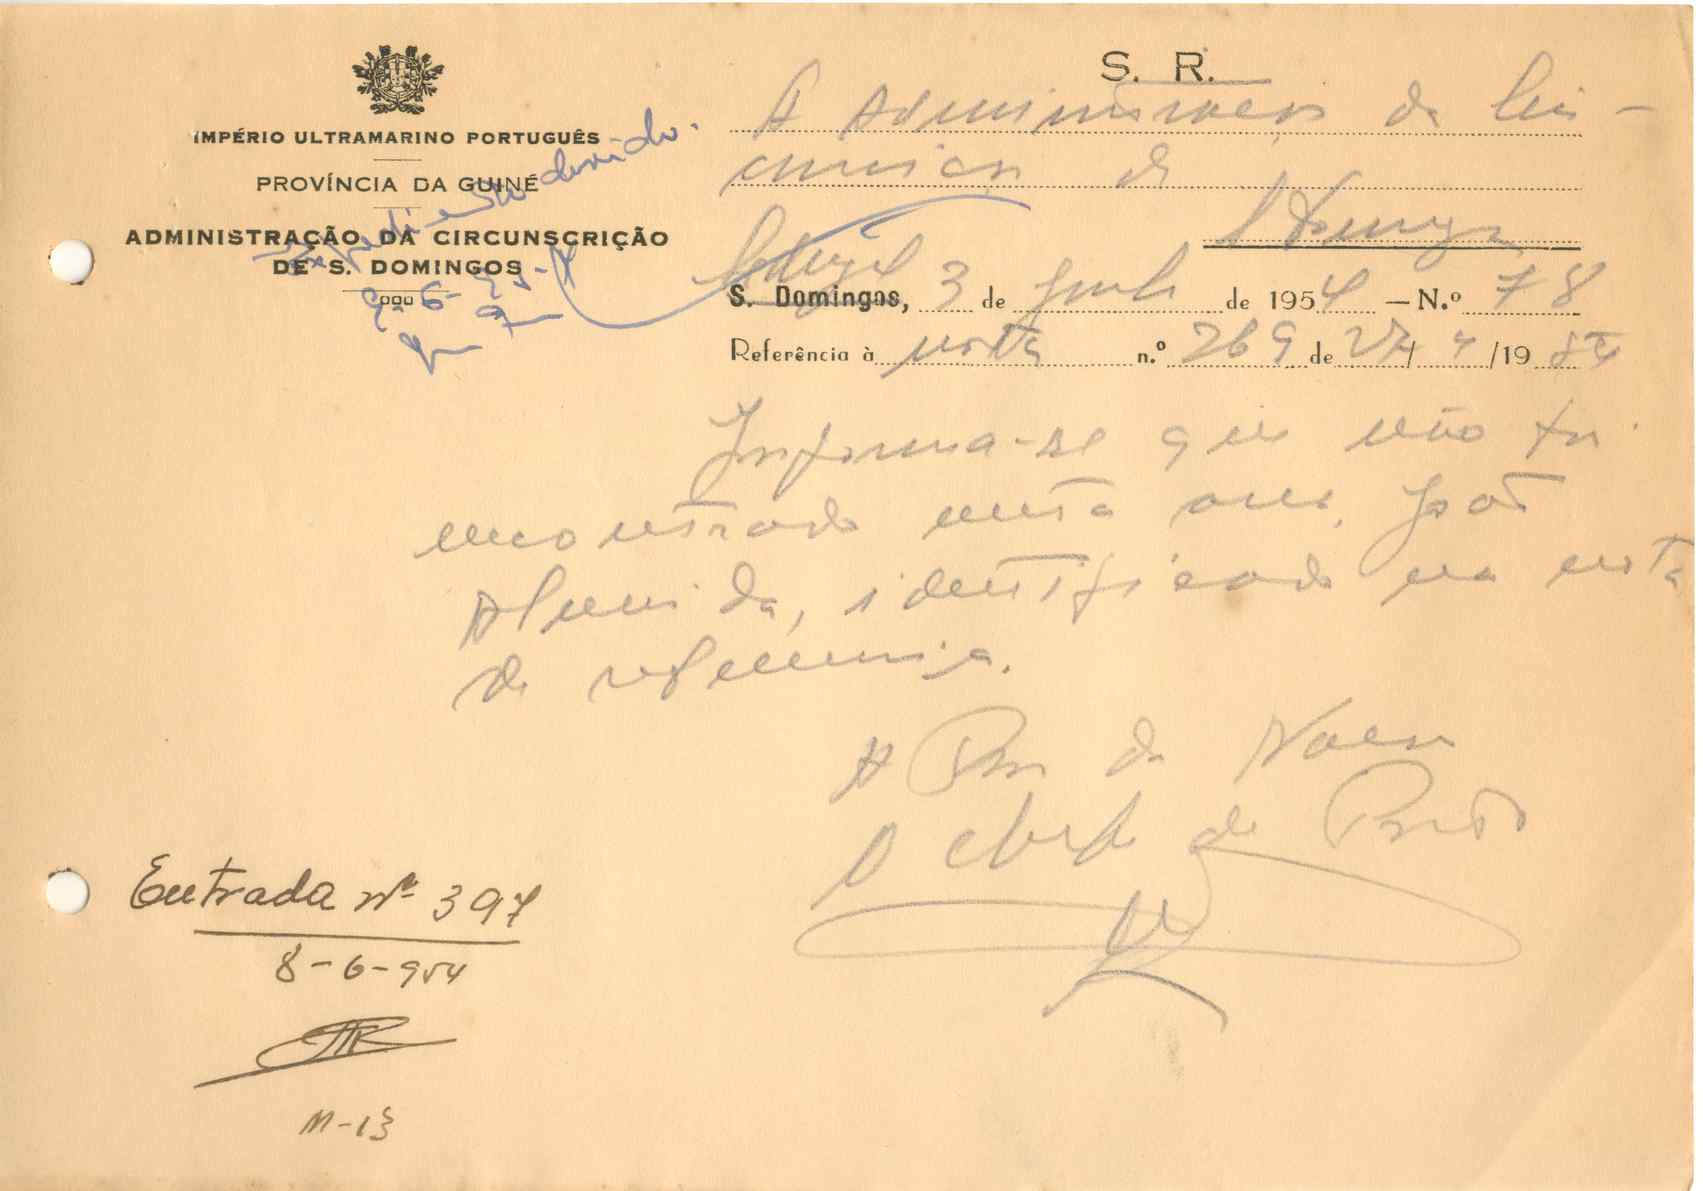 S. R.
IMPÉRIO ULTRAMARINO PORTUGUÊS
PROVÍNCIA DA GUINÉ
ADMINISTRAÇÃO DA CIRCUNSCRIÇÃO
DE S. DOMINGOS
Expediente devido.
9-6-954
A Administração da Cir-
cunscrição de
S. Domingos
S. Domingos, 3 de Junho de 1954 — N.º 78
Referência à nota n.º 269 de 27/4/1954
Informa-se que não foi
encontrado nesta área, João
Almeida, identificado na nota
de referência.
O Chefe de Posto
Entrada nº 397
8-6-954
M-13